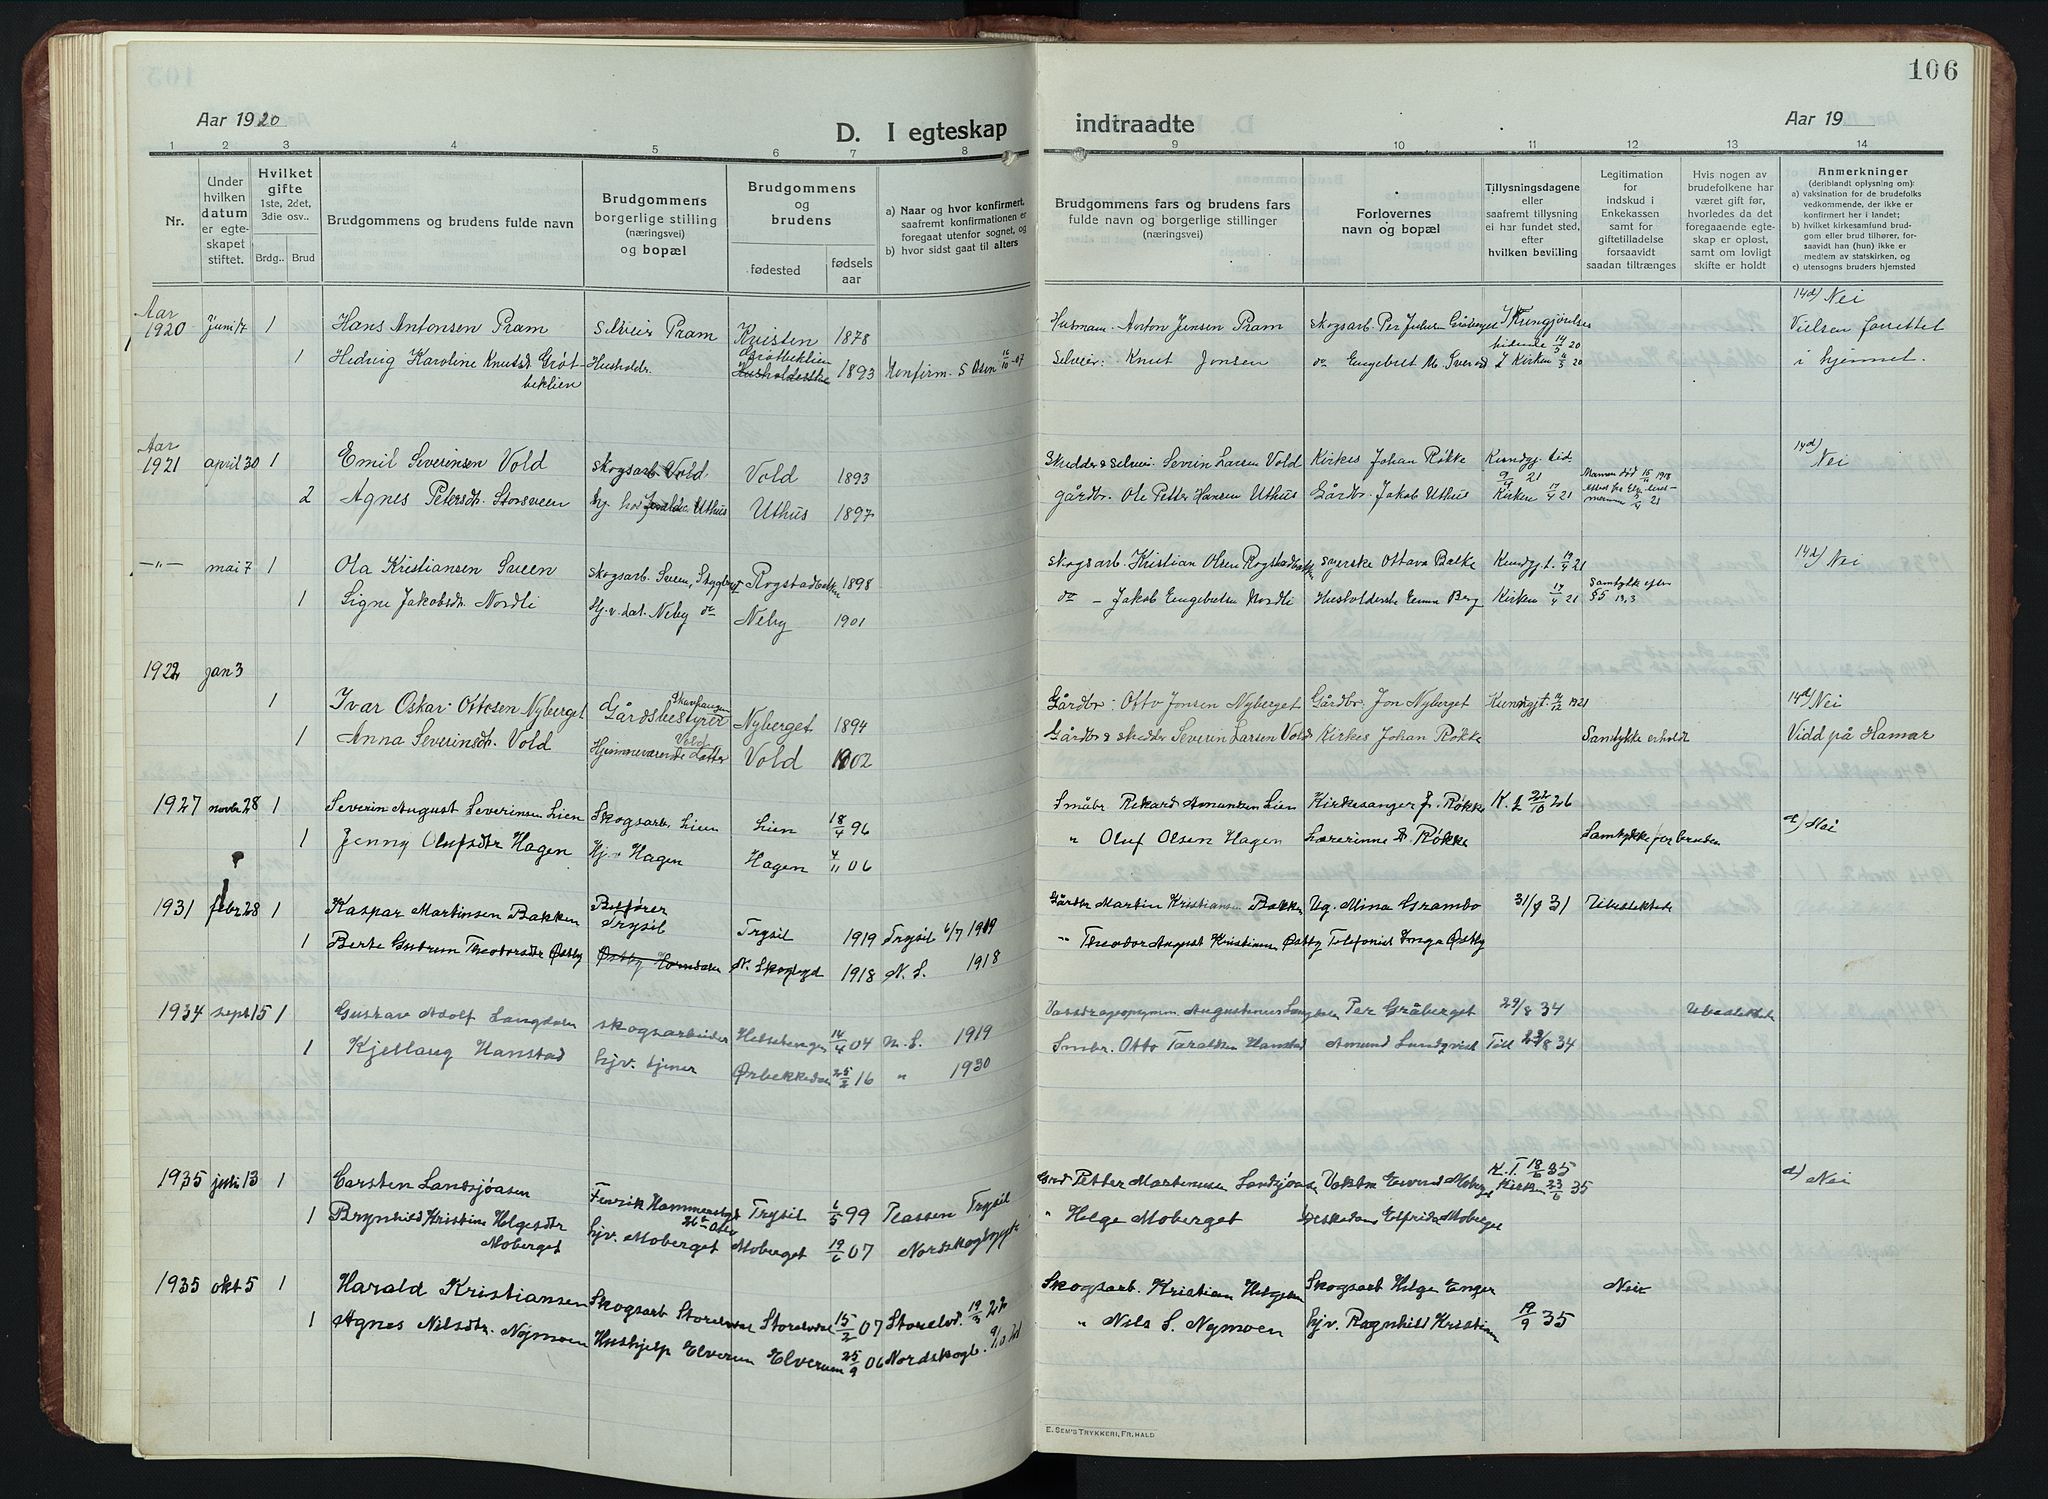 106
Aar 1920
D. I egteskap
indtraadte
Aar 19
1 2 3 4 5 6 7 8 9 10 11 12 13 14
Nr.
Under hvilken datum er egteskapet stiftet.
Hvilket gifte 1ste, 2det, 3die osv..
Brdg.. Brud
Brudgommens og brudens fulde navn
Brudgommens borgerlige stilling (næringsvei) og bopæl
Brudgommens og brudens
fødested
fødselsaar
a) Naar og hvor konfirmert, saafremt konfirmationen er foregaat utenfor sognet, og
b) hvor sidst gaat til alters
Brudgommens fars og brudens fars fulde navn og borgerlige stillinger (næringsvei)
Forlovernes navn og bopæl
Tillysningsdagene eller saafremt tillysning ei har fundet sted, efter hvilken bevilling
Legitimation for indskud i Enkekassen samt for giftetilladelse forsaavidt saadan tiltrænges
Hvis nogen av brudefolkene har været gift før, hvorledes da det foregaaende egteskap er opløst, samt om lovligt skifte er holdt
Anmerkninger (deriblandt oplysning om):
a) vaksination for de brudefolks vedkommende, der ikke er konfirmert her i landet;
b) hvilket kirkesamfund brudgom eller brud tilhører, forsaavidt han (hun) ikke er medlem av statskirken, og
c) utensogns bruders hjemsted
Aar 1920 Juni 17 1 Hans Antonsen Pram Selveier Pram Kvisten 1878 Husmann Anton Jensen Pram Skogsarb. Per Julius Gråberget 14d) Nei
1 Hedvig Karoline Knutsd. Grøtbeklien Husholdr. Grøtbeklien 1893 Konfirm. S Osen 16/10-07 Selveier: Knut Jonsen do Engebret M. I Kirken 20 Vielsen forrettet i hjemmet.
Aar 1921 april 30 1 Emil Severinsen Vold Skogsarb. Vold. Vold 1893 Skredder & Selveier. Severin Larsen Vold Kirkes Johan Røkke Kundgj. tid. 21 14d) Nei
2 Agnes Petersdtr. Storsveen hj. hos Uthus Uthus 1897 gårdbr. Ole Petter Hansen Uthus Gårdbr. Jakob Uthus Kirken 17/4 21 Mannen død 1918
—"— mai 7 1 Ola Kristiansen Sveen Skogsarb. Sveen, Rogstadbakken 1898 Skogsarb Kristian Olsen Rogstadbakken Syerske Ottava Bakke Kundgj. t. 19/4 21 14d) Nei
1 Signe Jakobsdtr. Nordli Hj.v. dat. Neby do Neby 1901 do – Jakob Engebretsen Nordli Husholderske Emma Berg Kirken 17/4 21 Samtykke efter §5
1922 jan 3
1 Ivar Oskar Ottosen Nyberget Gårdsbestyrer Nyberget 1894 Gårdbr: Otto Jonsen Nyberget Gårdbr. Jon Nyberget Kundgj.t. 1921 14d) Nei
1 Anna Severinsdtr. Vold Hjemmeværende datter Vold Vold 1902 Gårdbr & skredder Severin Larsen Vold Kirkes Johan Røkke Samtykke erholdt Vidd på Hamar
1927 novbr. 28 1 Severin August Severinsen Lien Skogsarb. Lien Lien 18/4 96 Småbr. Rikard Amundsen Lien Kirkesanger J. Røkke 22/10 26 d) Nei
1 Jenny Olufsdtr Hagen Hj. Hagen Hagen 4/11 06 " Oluf Olsen Hagen Lærerinne A. Røkke Samtykke for bruden
?
1931 febr 28 1 Kaspar Martinsen Bakken Bilfører Trysil Trysil 1919 Trysil 6/7 1919 Gårdbr Martin Kristiansen Bakken Ug. Mina Grambo 31 Ubeslektede
1 Berte Gudrun Theodorsdtr Østby Østby N. Skogbygd 1918 N. S. 1918 " Theodor August Kristiansen Østby Telefonist Inga Østby
1934 sept 15 1 Gustav Adolf Langdalen skogsarbeider 14/4 04 N. S. 1919 Augustinus Langdalen Per Gråberget 29/8 34 Ubeslektede
1 Kjellaug Hanstad hjv. tjener Ørbekkedalen 25/2 16 " 1930 Smbr. Otto Taralsen Hanstad Amund Lundqvist Till 23/8 34
1935 juli 13 1 Carsten Landsjøasen Fenrik Trysil 6/5 99 Plassen Trysil Grbr Petter Martinusen Landsjøasen Eivind Moberget K. T. 18/6 35 d) Nei
1 Brynhild Kristine Helgesdtr Moberget hjv. Moberget Moberget 19/6 07 Nordskogbygd " Helge Moberget Elfrida Moberget Kirken 23/6 35
1935 okt 5 1 Harald Kristiansen Skogsarb Storelvdal Storelvdal 15/2 07 Storelvd. 19/3 22 Skogsarb. Kristian Helgesen Skogsarb Helge Enger Nei
1 Agnes Nilsdtr. Nymoen Hushjelp Elverum Elverum 25/9 06 Nordskogb. " Nils S. Nymoen hjv. Ragnhild Kristiansen 19/9 35
E. SEM'S TRYKKERI, FR. HALD